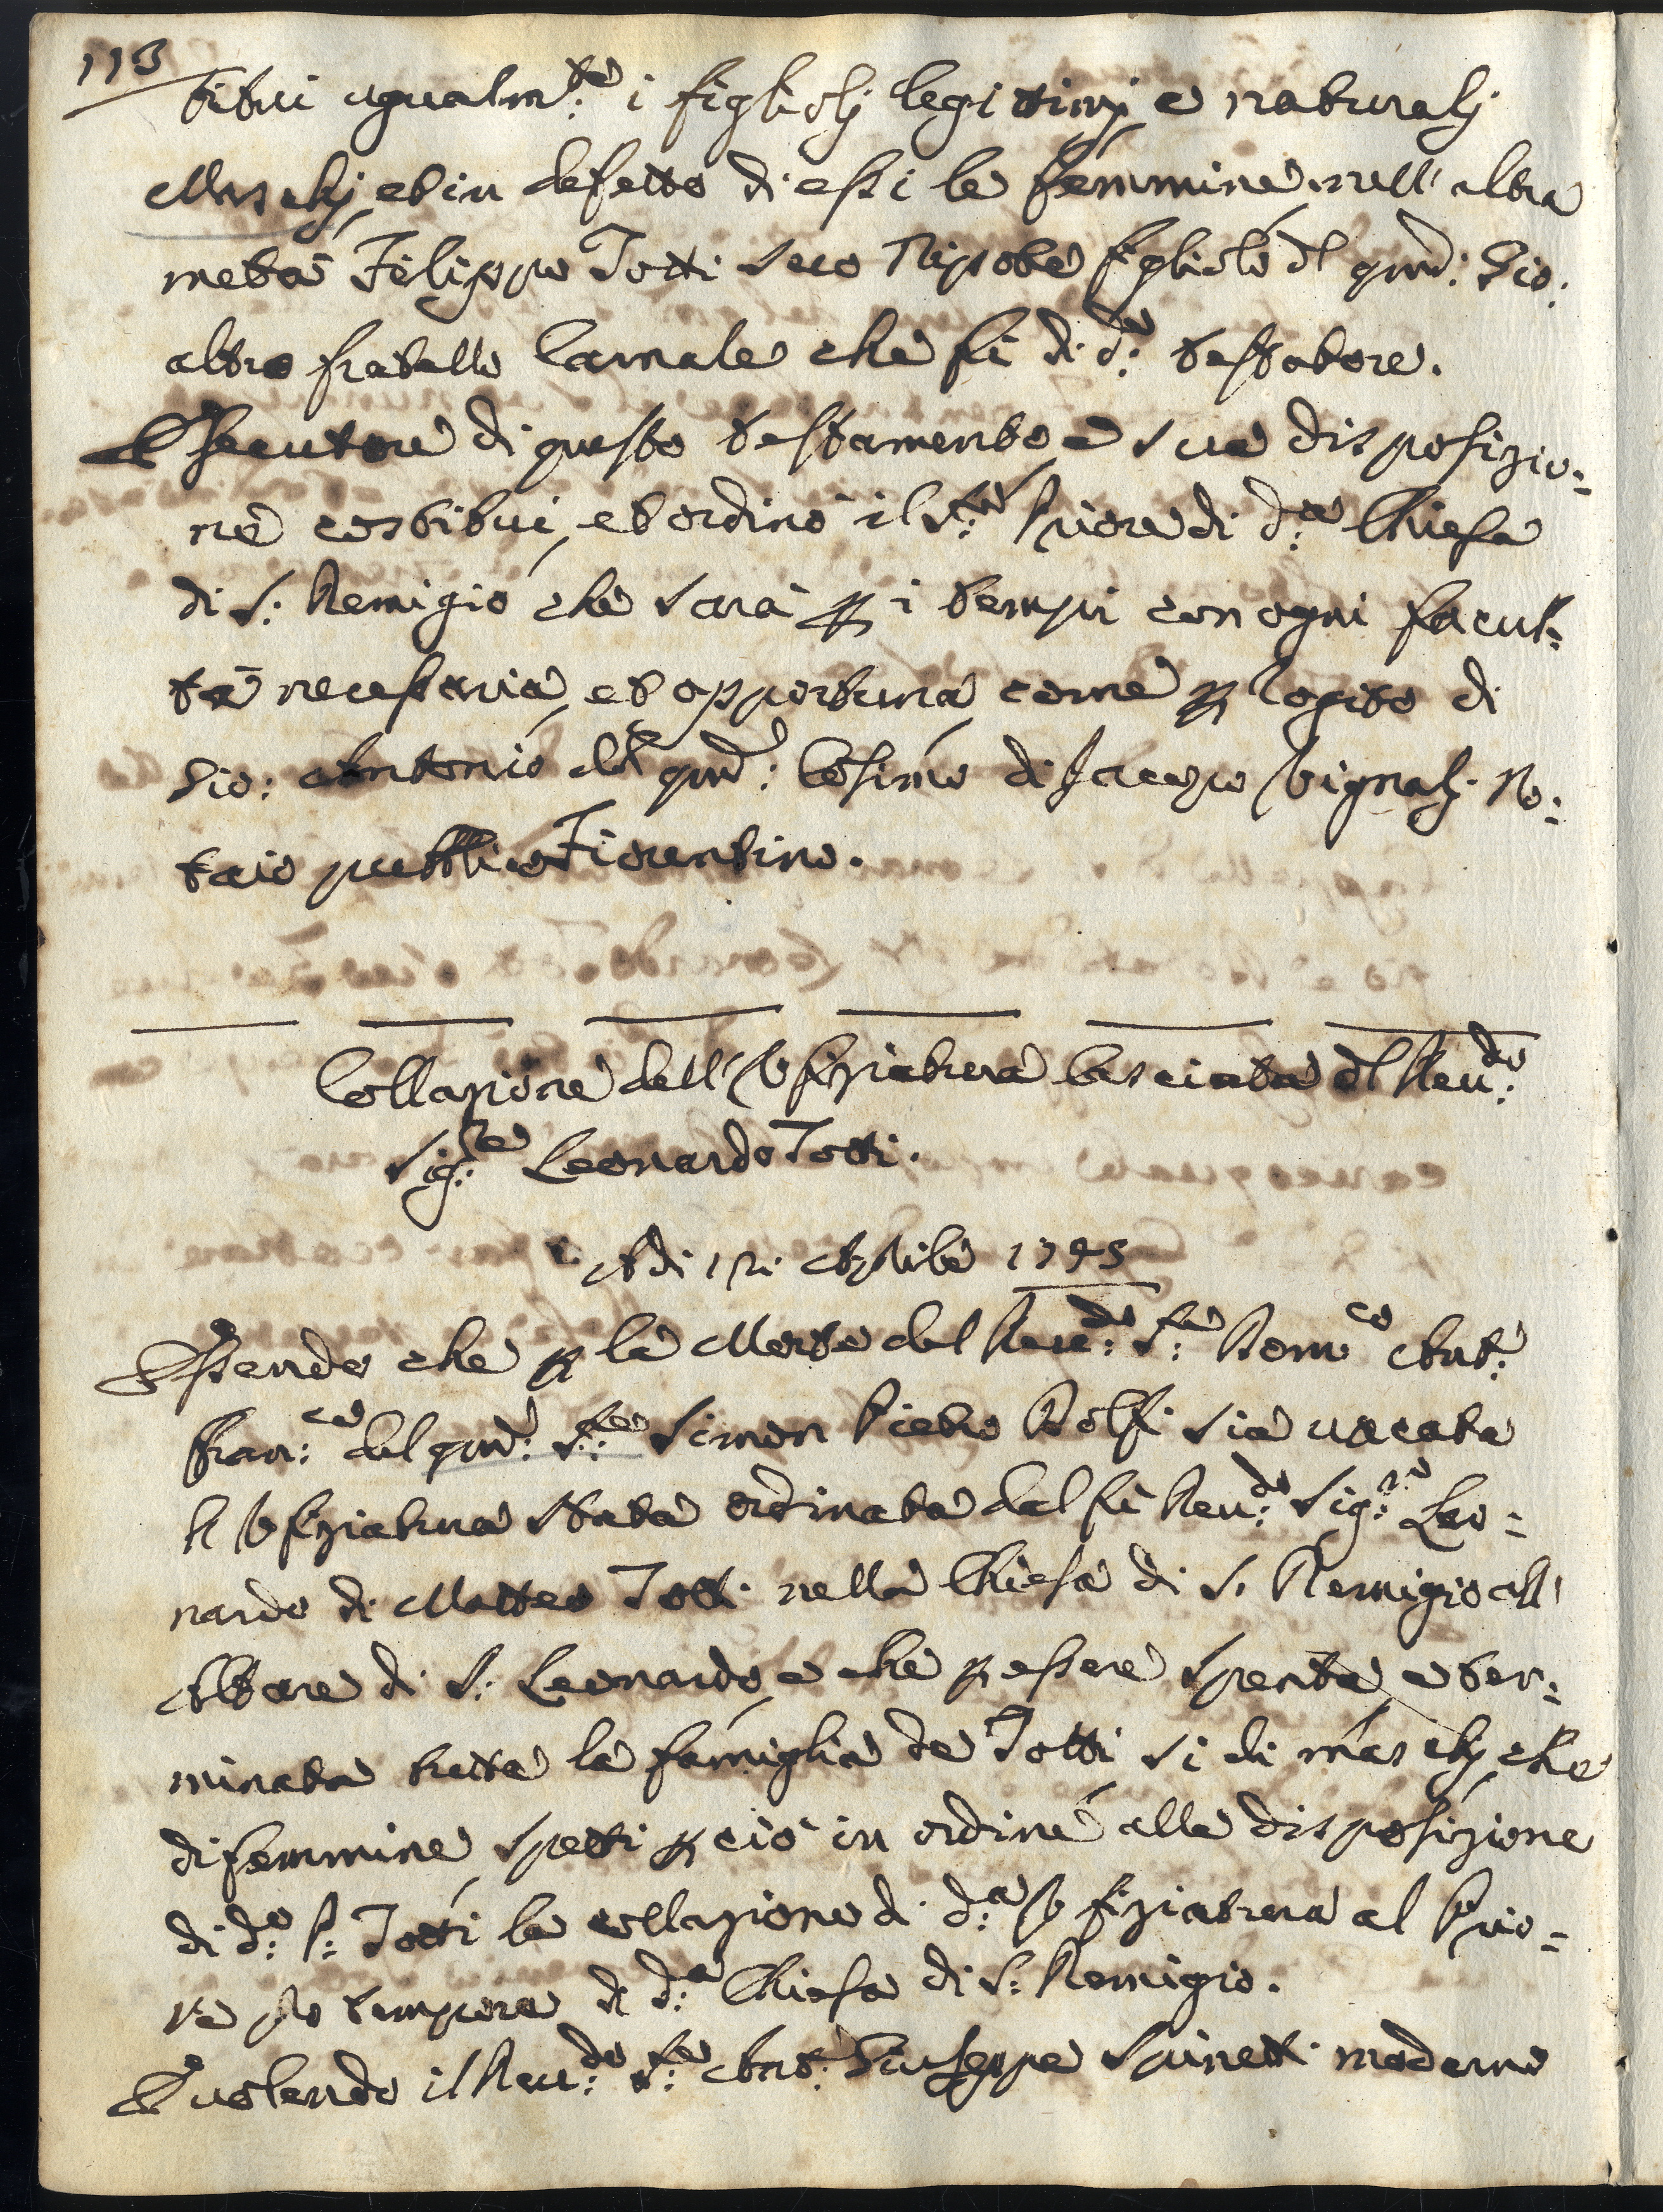 113
titui ugualm:te i figliolj legittimj e naturalj
Maschj, et in defetto di essi le femmine, nell' altra
metà Filippo Totti suo Nipote figliolo dl qnd: Gio:
altro fratello Carnale che fù di d:o testatore.
Esecutore di questo testamento e sua disposizio=
ne costituì, et ordinò il S:re Priore di d:a Chiesa
di S: Remigio che sarà p i tempi con ogni facul=
tà necessaria, et opportuna come p rogito di
Gio: Antonio del qnd: Cosimo di Jacopo Vignalj No=
taio pubblico Fiorentino.
Collazione dell' Vfiziatura lasciata dl Reu:do
Sig:re Leonardo Totti.
Adi 12: Aprile 1745
Essendo che p la Morte del Reu:do S:re Dom:co Ant:
Fran:co del qnd: S:re Simon Pietro Dolfi sia uacata
l' Vfiziatura stata ordinata dal fù Reu:do Sig:re Leo=
nardo di Matteo Totti nella Chiesa di S. Remigio all'
Altare di S: Leonardo, e che p essere spenta, e ter=
minata tutta la famiglia de Totti sì di maschj, che
di femmine, spetti p ciò in ordine alla disposizione
di d:o S: Totti la collazione di d:a Vfiziatura al Prio=
re pro tempore di d:a Chiesa di S: Remigio.
E uolendo il Reu:do S:re Ant: Giuseppe Sainetti moderno